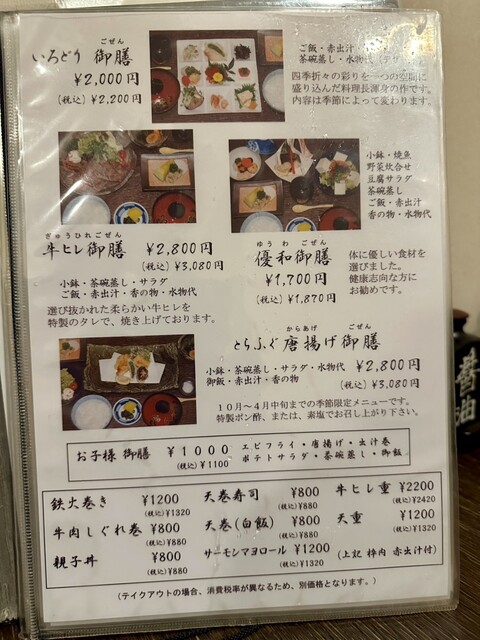 ごぜん
いろどり 御膳
¥2,000円
(税込) ¥2,200円
ご飯・赤出汁・
茶碗蒸し・水物代(デザ
四季折々の彩りを一つの空間に
盛り込んだ料理長渾身の作です。
内容は季節によって変わります。
ぎゅうひれごぜん
牛ヒレ御膳 ¥2,800円
(税込) ¥3,080円
小鉢・茶碗蒸し・サラダ
ご飯・赤出汁・香の物・水物代
選び抜かれた柔らかい牛ヒレを
特製のタレで、焼き上げております。
小鉢・焼魚
野菜炊合せ
豆腐サラダ
茶碗蒸し
ご飯・赤出汁
香の物・水物代
ゆうわ ごぜん
優和御膳
¥1,700円
(税込) ¥1,870円
体に優しい食材を
選びました。
健康志向な方に
お勧めです。
からあげ ごぜん
とらふぐ唐揚げ御膳
小鉢・茶碗蒸し・サラダ・水物代
御飯・赤出汁・香の物
¥2,800円
(税込) ¥3,080円
10月～4月中旬までの季節限定メニューです。
特製ポン酢、または、素塩でお召し上がり下さい。
お子様 御膳 ¥1000
(税込) ¥1100
エビフライ・唐揚げ・出汁巻
ポテトサラダ・茶碗蒸し・御飯
鉄火巻き ¥1200
(税込) ¥1320
天巻寿司 ¥800
(税込) ¥880
牛ヒレ重 ¥2200
(税込) ¥2420
牛肉しぐれ巻 ¥800
(税込) ¥880
天巻(白飯) ¥800
(税込) ¥880
天重 ¥1200
(税込) ¥1320
親子丼 ¥800
(税込) ¥880
サーモンマヨロール ¥1200
(税込) ¥1320
(上記 枠内 赤出汁付)
(テイクアウトの場合、消費税率が異なるため、別価格となります。)
醤油